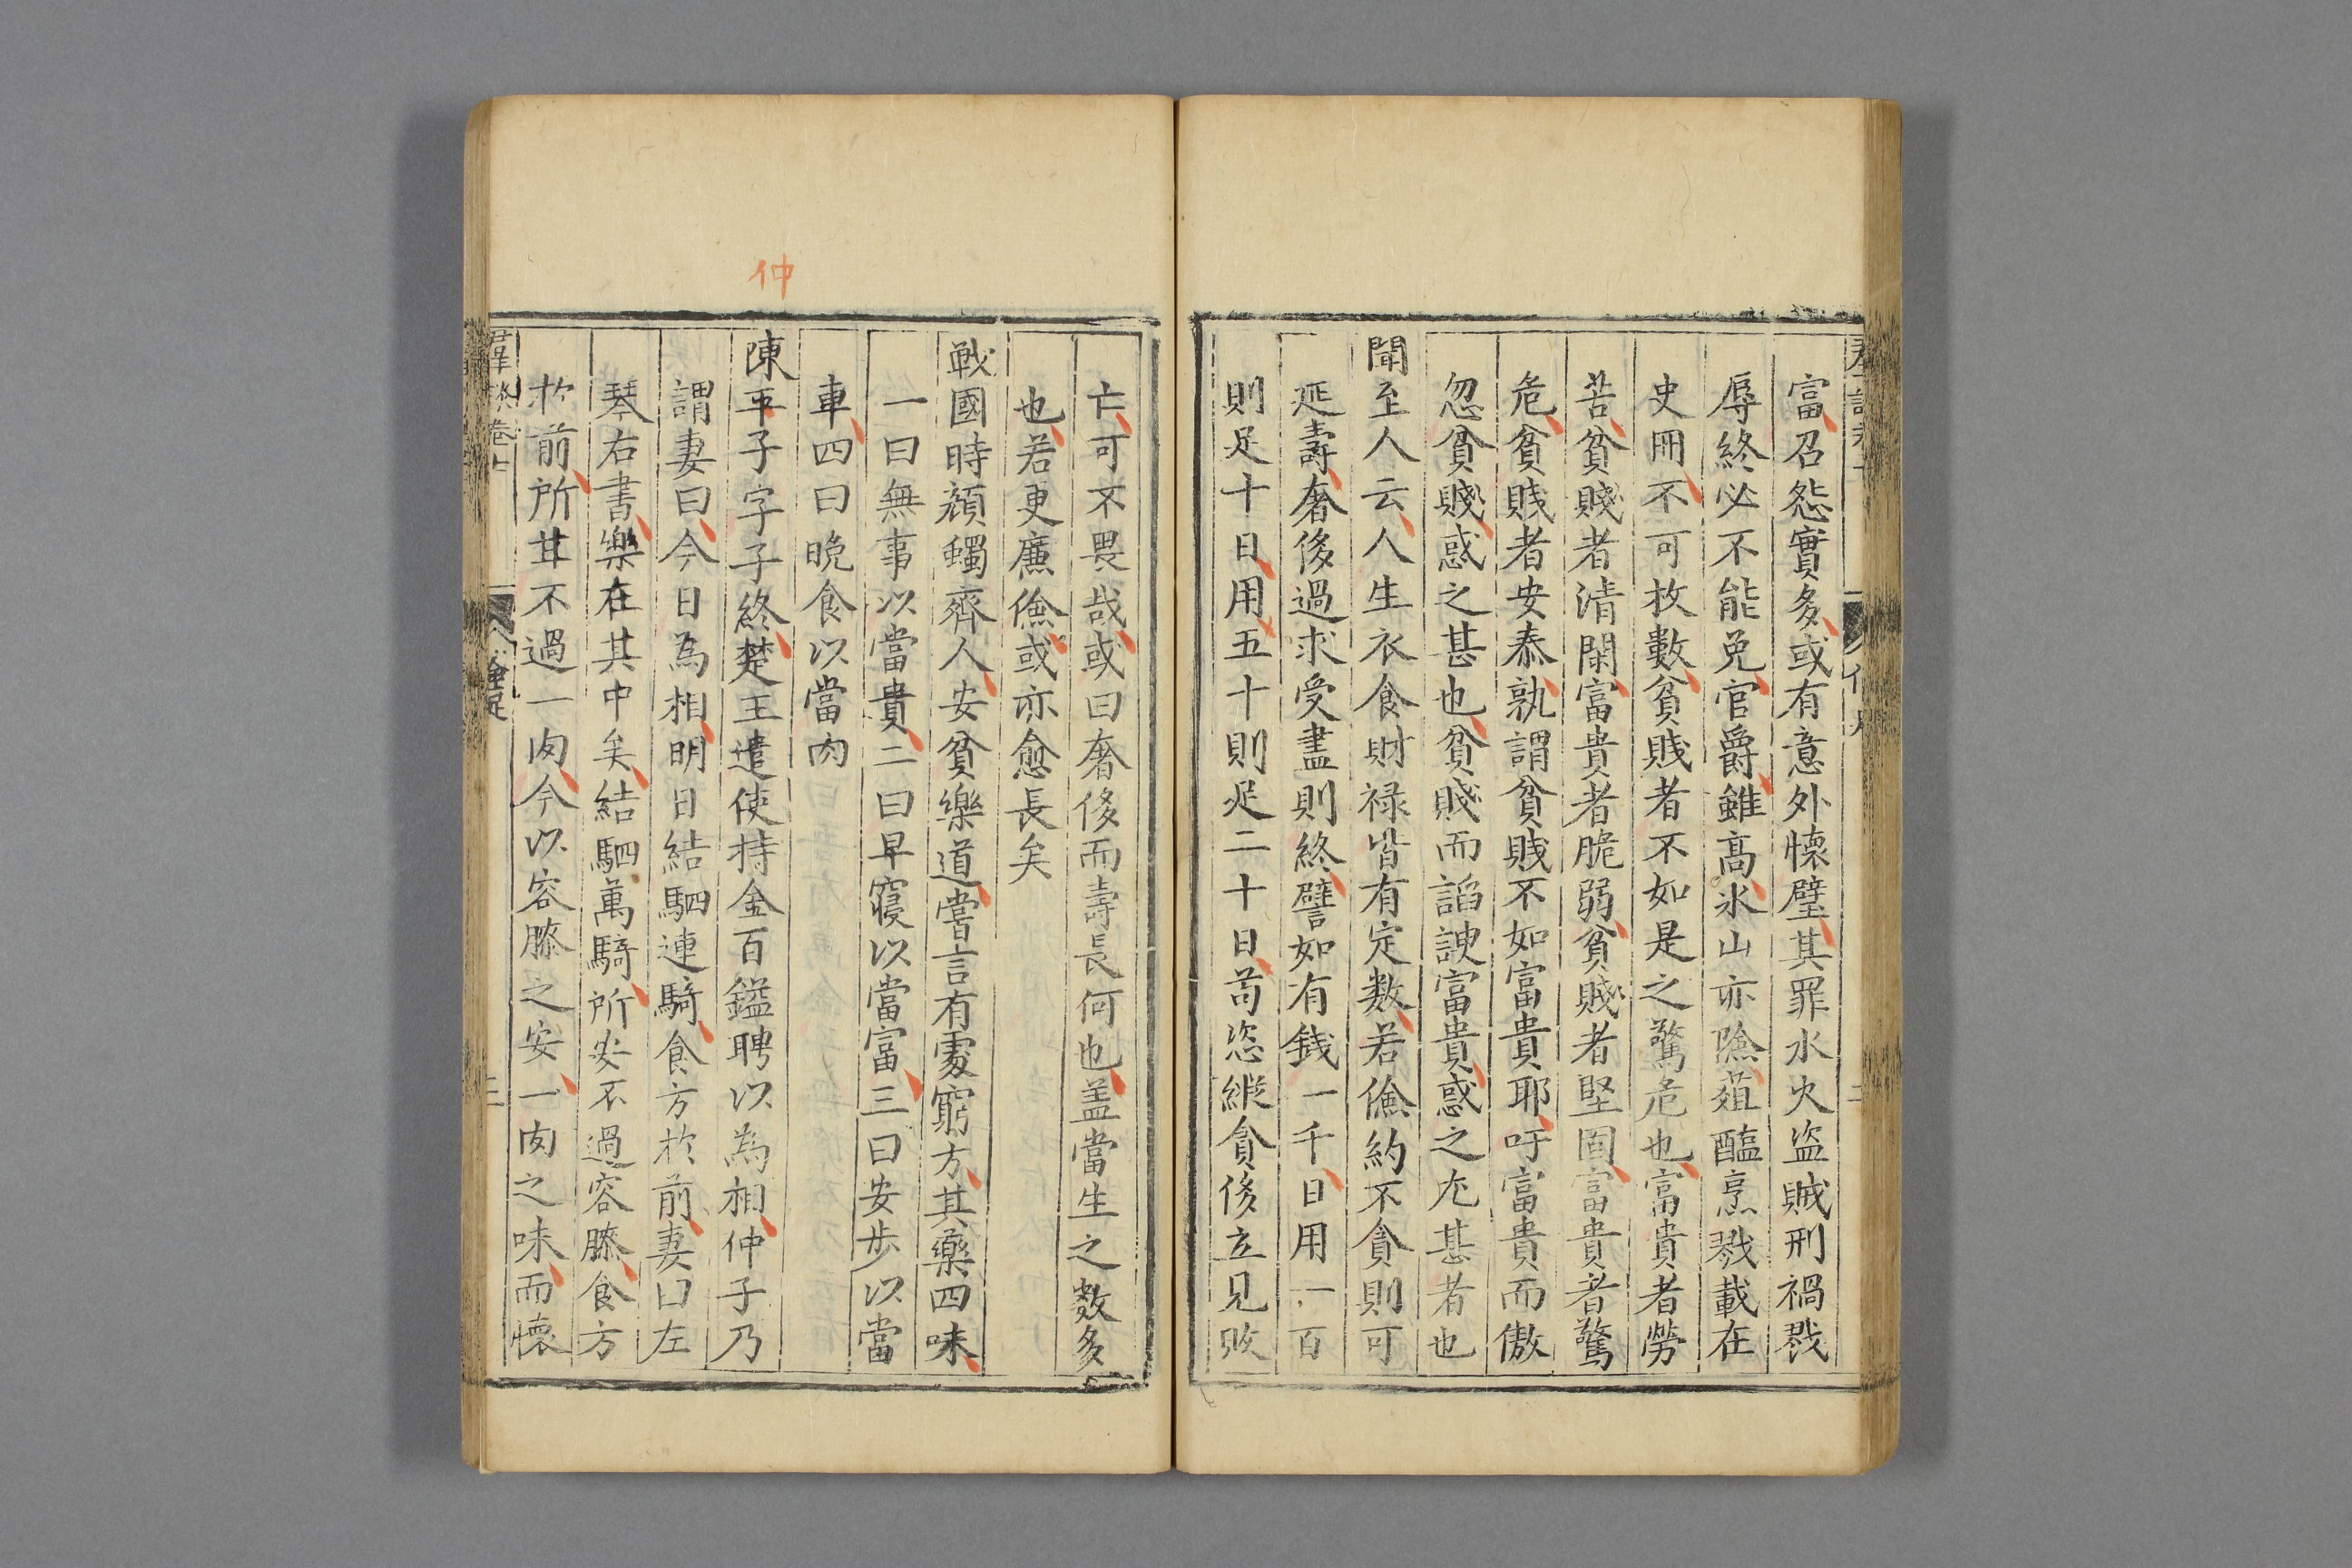 富召怨實多或有意外懐璧其罪水火盗賊刑禍戮
辱終必不能免官爵雖髙氷山亦險葅醢烹戮載在
史冊不可枚數貧賤者不如是之驚危也富貴者勞
苦貧賤者清閑富貴者脆弱貧賤者堅固富貴者驚
危貧賤者安泰孰謂貧賤不如富貴耶吁富貴而傲
忽貧賤惑之甚也貧賤而謟諛富貴惑之尤甚者也
聞至人云人生衣食財禄皆有定数若儉約不貪則可
延壽奢侈過求受盡則終譬如有錢一千日用一百
則足十日用五十則足二十日苟恣縱貪侈立見敗
亡可不畏哉或曰奢侈而壽長何也盖當生之数多
也若更廉儉或亦愈長矣
戦國時顔蠋齊人安貧樂道嘗言有處窮方其藥四味
一曰無事以當貴二曰早寝以當富三曰安歩以當
車四曰晩食以當肉
仲
陳平子字子終楚王遣使持金百鎰聘以為相仲子乃
謂妻曰今日為相明日結駟連騎食方於前妻曰左
琴右書樂在其中矣結駟萬騎所安不過容膝食方
於前所甘不過一肉今以容膝之安一肉之味而懐
卷七
儉足